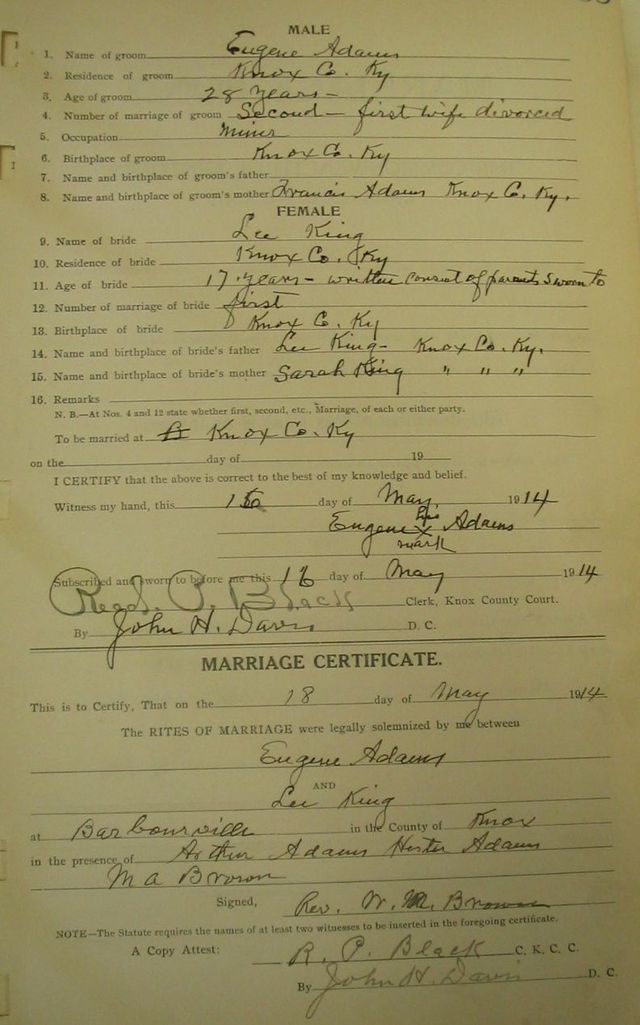 MALE
1. Name of groom Eugene Adams
2. Residence of groom Knox Co. Ky
3. Age of groom 28 years -
4. Number of marriage of groom Second - first wife divorced
5. Occupation Miner
6. Birthplace of groom Knox Co. Ky
7. Name and birthplace of groom's father
8. Name and birthplace of groom's mother Francis Adams Knox Co. Ky.
FEMALE
9. Name of bride Lee King
10. Residence of bride Knox Co. Ky
11. Age of bride 17 years - written consent of parents sworn to
12. Number of marriage of bride first
13. Birthplace of bride Knox Co. Ky
14. Name and birthplace of bride's father Lee King - Knox Co. Ky.
15. Name and birthplace of bride's mother Sarah King " " "
16. Remarks
N. B.—At Nos. 4 and 12 state whether first, second, etc., Marriage, of each or either party.
To be married at Knox Co. Ky
on the day of 19
I CERTIFY that the above is correct to the best of my knowledge and belief.
Witness my hand, this 16 day of May 1914
Eugene his X mark Adams
Subscribed and sworn to before me this 16 day of May 1914
Read. P. Black Clerk, Knox County Court.
By John H. Davis D. C.
MARRIAGE CERTIFICATE.
This is to Certify, That on the 18 day of May 1914
The RITES OF MARRIAGE were legally solemnized by me between
Eugene Adams
AND
Lee King
at Barbourville in the County of Knox
in the presence of Arthur Adams Hester Adams
M A Brown
Signed, Rev. W. M. Brown
NOTE—The Statute requires the names of at least two witnesses to be inserted in the foregoing certificate.
A Copy Attest: R. P. Black C. K. C. C.
By John H. Davis D. C.